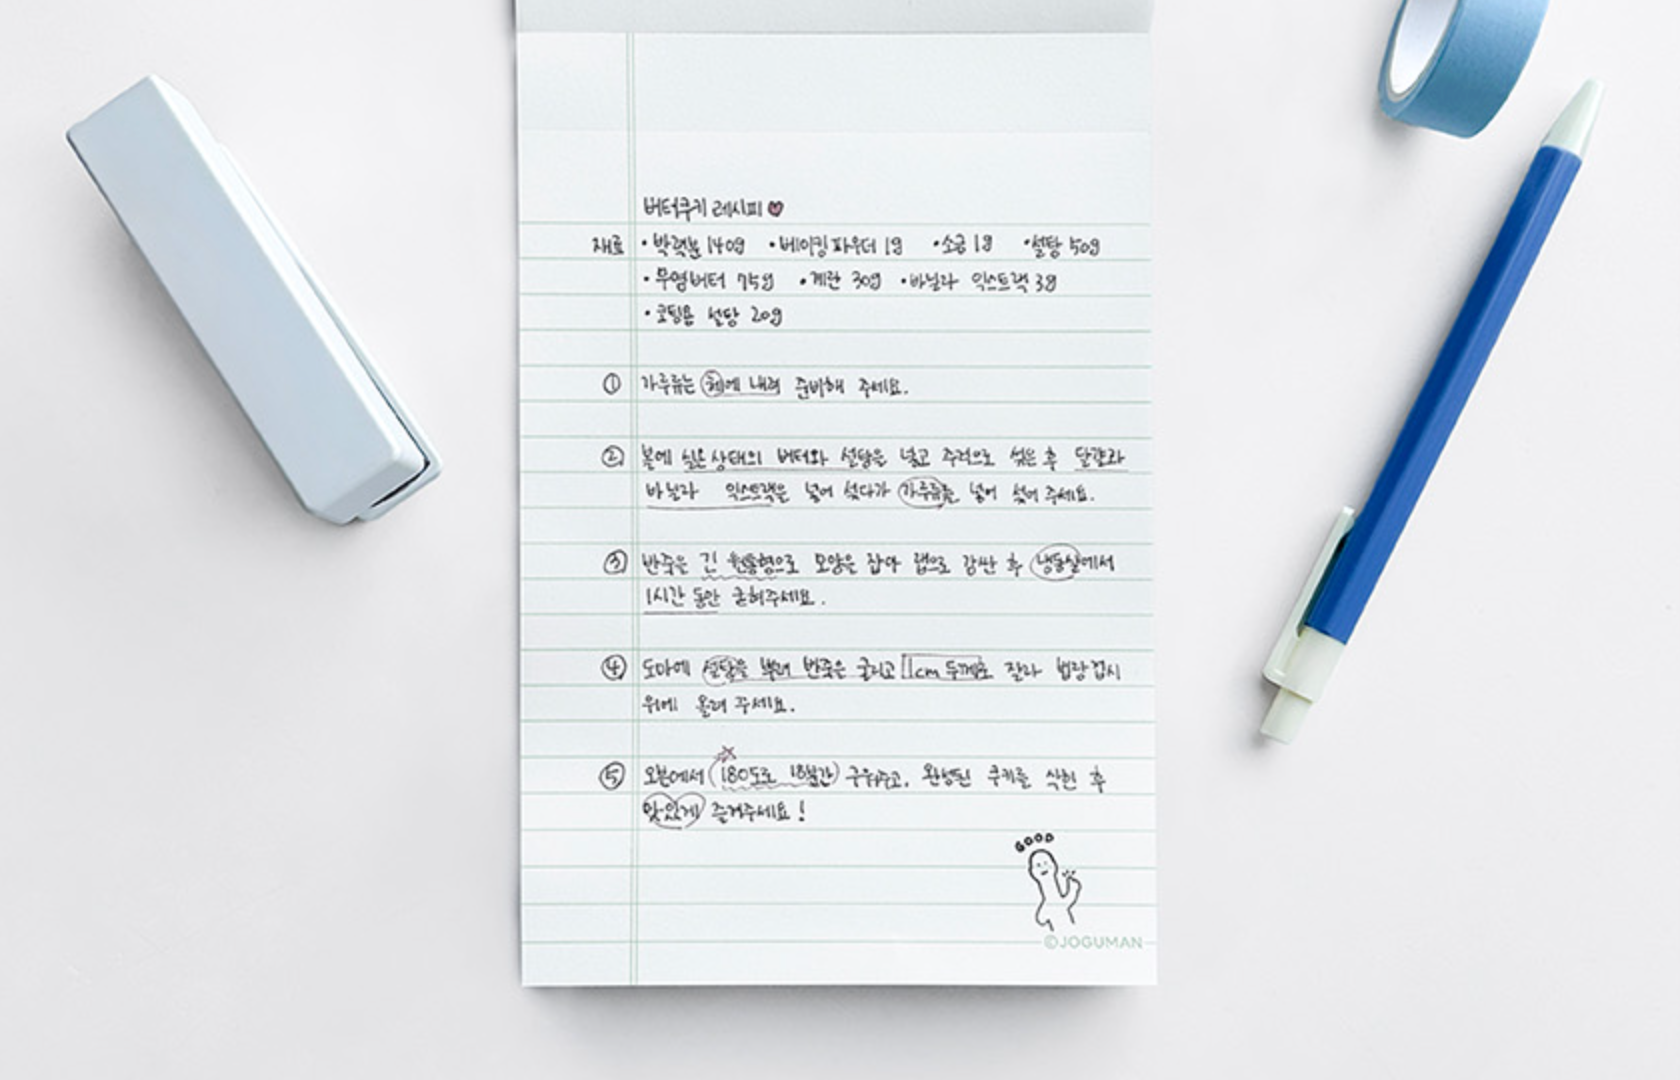 버터쿠키 레시피
재료 · 박력분 140g · 베이킹파우더 1g · 소금 1g · 설탕 50g
· 무염버터 75g · 계란 30g · 바닐라 익스트랙 3g
· 코팅용 설탕 20g
① 가루류는 체에 내려 준비해 주세요.
② 볼에 실온 상태의 버터와 설탕을 넣고 주걱으로 섞은 후 달걀과
바닐라 익스트랙을 넣어 섞다가 가루류를 넣어 섞어 주세요.
③ 반죽은 긴 원통형으로 모양을 잡아 랩으로 감싼 후 냉동실에서
1시간 동안 굳혀주세요.
④ 도마에 설탕을 뿌려 반죽은 굴리고 1cm 두께로 잘라 법랑접시
위에 올려 주세요.
⑤ 오븐에서 180도로 18분간 구워주고, 완성된 쿠키를 식힌 후
맛있게 즐겨주세요!
GOOD
©JOGUMAN